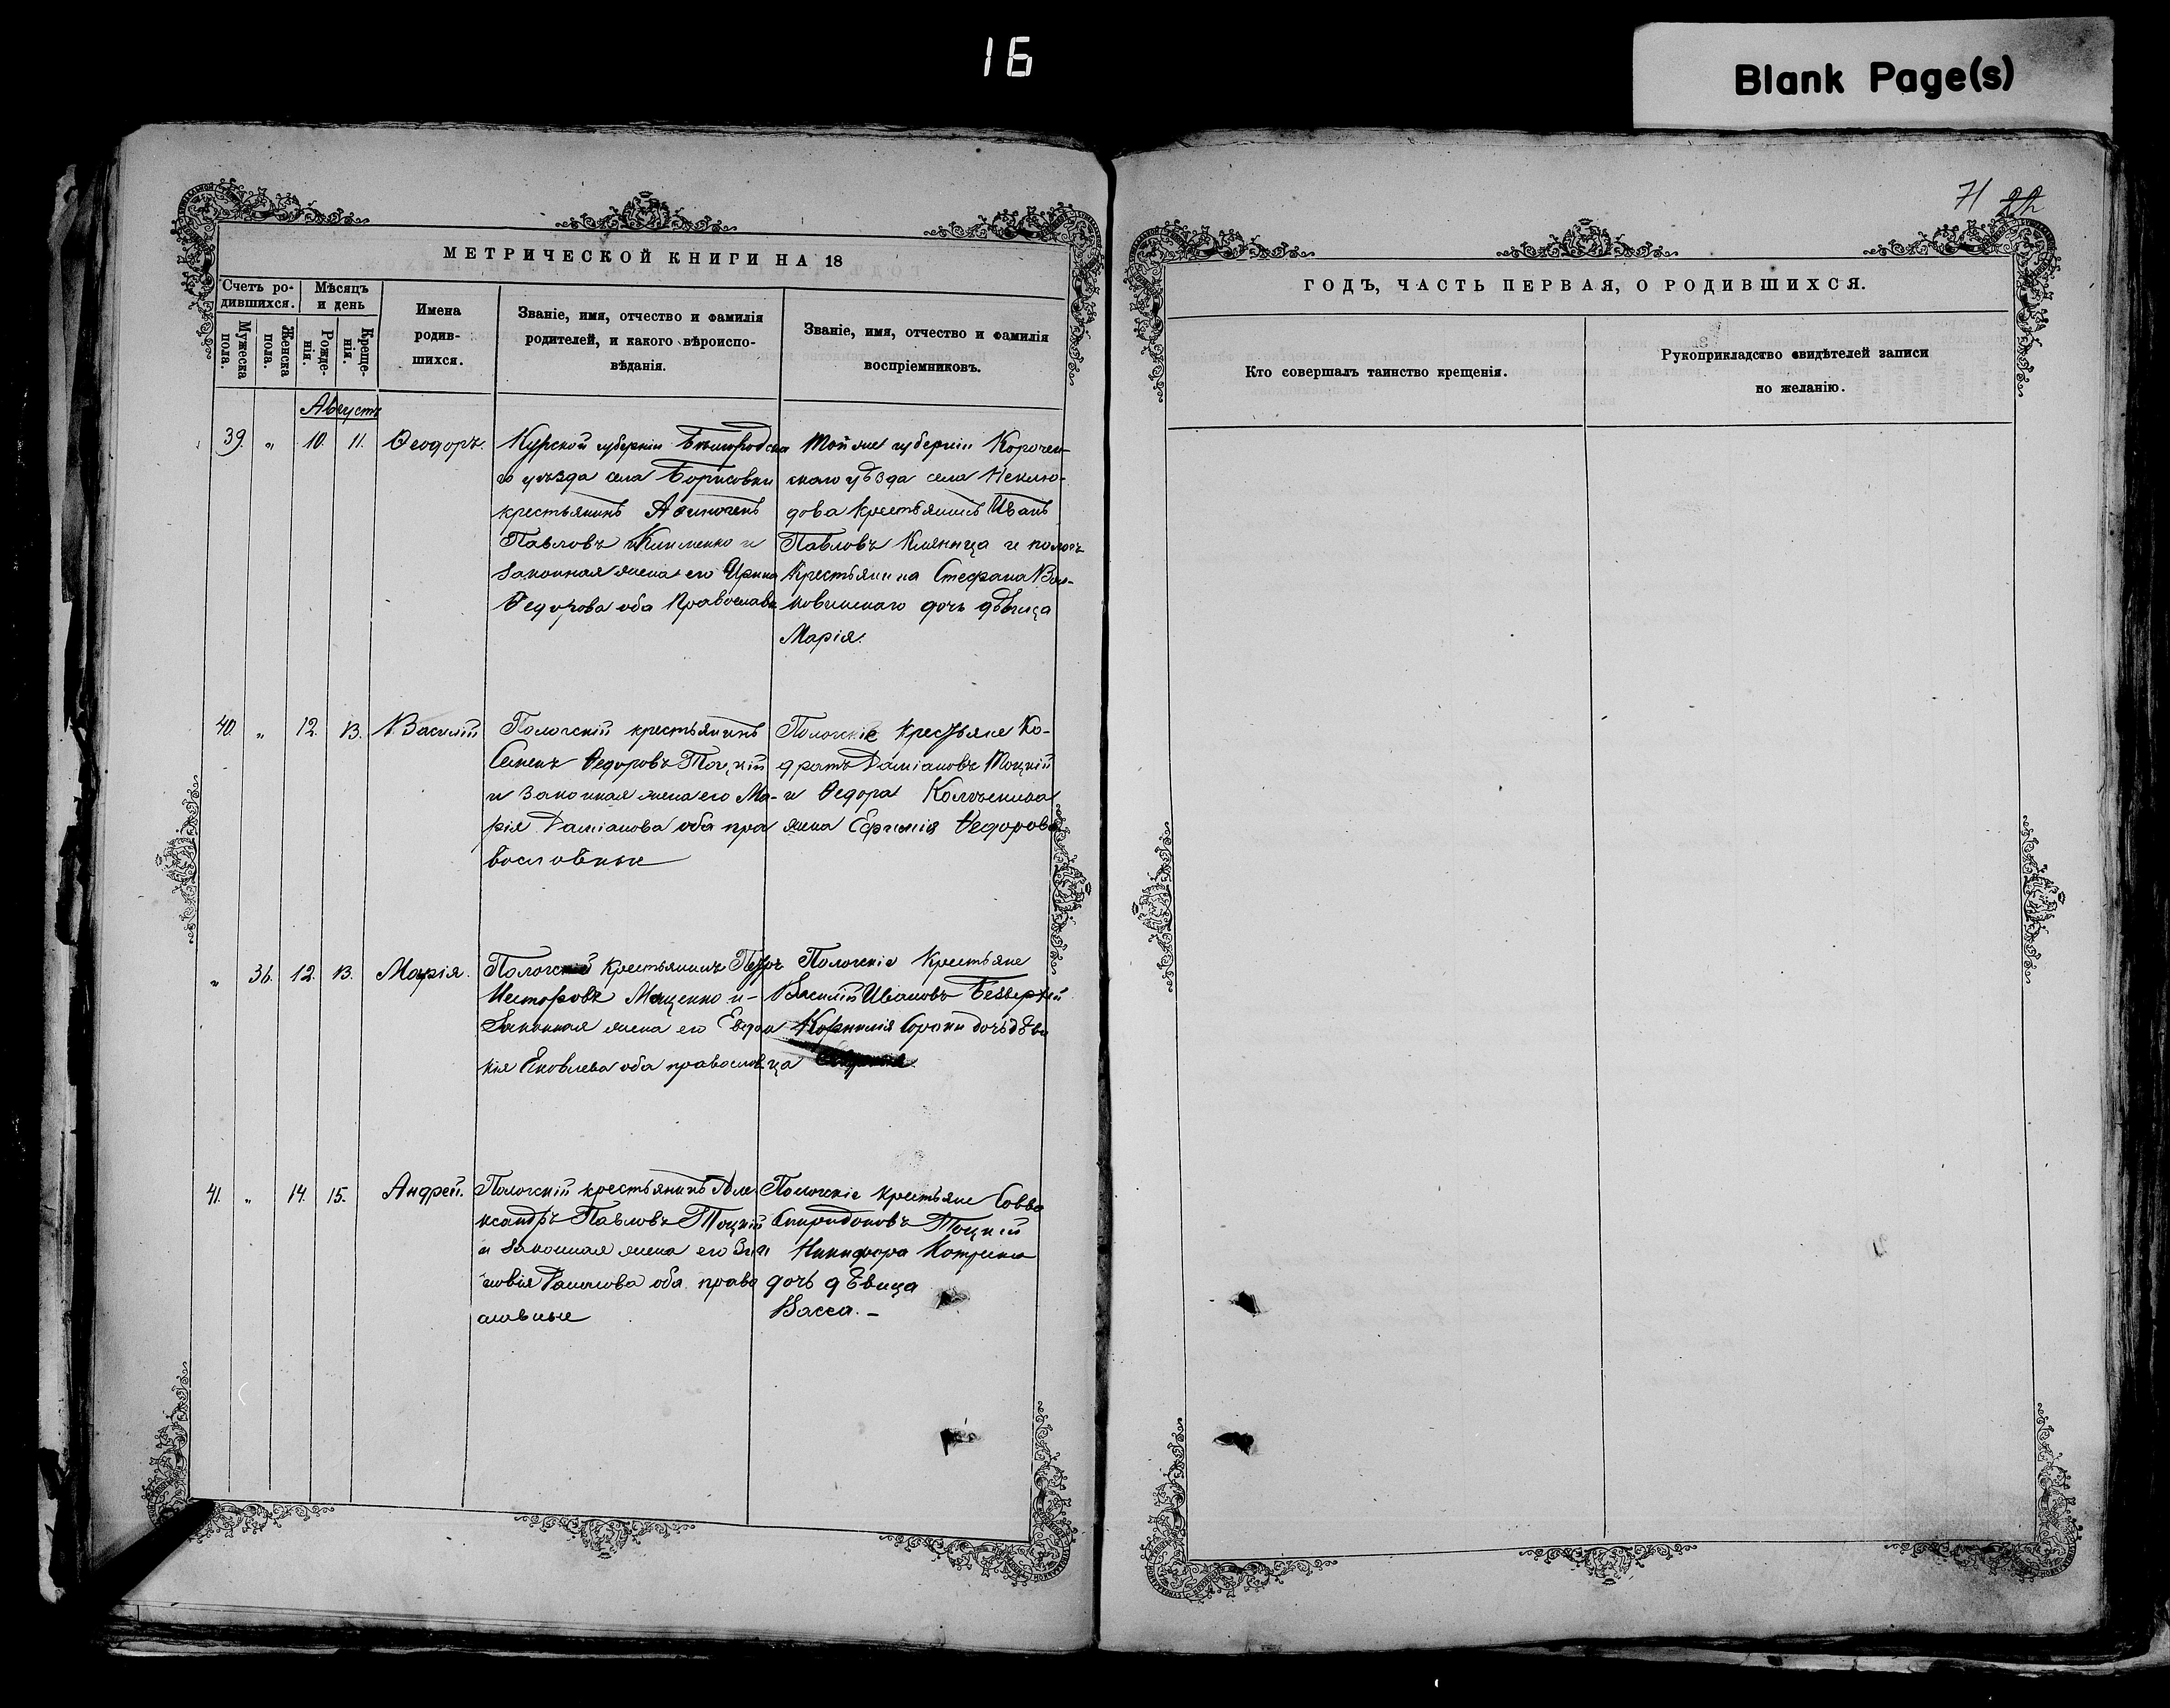 16
Blank Page(s)
71 22
МЕТРИЧЕСКОЙ КНИГИ НА 18
Счетъ ро-
дившихся.
Мужеска пола.
Женска пола.
Мѣсяцъ
и день
Рожде-
нія.
Креще-
нія.
Имена
родив-
шихся.
Званіе, имя, отчество и фамилія
родителей, и какого вѣроиспо-
вѣданія.
Званіе, имя, отчество и фамилія
воспріемниковъ.
Августъ
39. " 10. 11. Ѳеодоръ.
Курской губерніи Бѣлгородска
го уѣзда села Борисовки
крестьянинъ
Павловъ Клименко и
законная жена его Ирина
Ѳедорова оба Православн
Той же губерніи Корочен-
скаго уѣзда села Неклю-
дова крестьянинъ Иванъ
Павловъ и
Крестьянина Стефана
дочь дѣвица
Марія.
40. " 12. 13. Василій
Пологскій крестьянинъ
Семенъ Ѳедоровъ Тоцкій
и законная жена его Ма-
рія Даміанова оба пра
вославные
Пологскіе крестьяне Ко-
дратъ Даміановъ Тоцкій
и Ѳедора
жена Ефимія Ѳедорова
" 36. 12. 13. Марія.
Пологскій крестьянинъ Петръ
Несторовъ Маценко и-
Законная жена его Евдо
кія Яковлева оба православ
Пологскіе Крестьяне
Василій Ивановъ Безверхій
Корнилія Сороки дочь дѣви
ца
41. " 14. 15. Андрей.
Пологскій крестьянинъ Але
ксандръ Павловъ Тоцкій
и законная жена его Зи
новія оба право
славные
Пологскіе крестьяне Савва
Спиридоновъ Тоцкій
и Никифора
дочь дѣвица
Васса. –
ГОДЪ, ЧАСТЬ ПЕРВАЯ, О РОДИВШИХСЯ.
Кто совершалъ таинство крещенія.
Рукоприкладство свидѣтелей записи
по желанію.